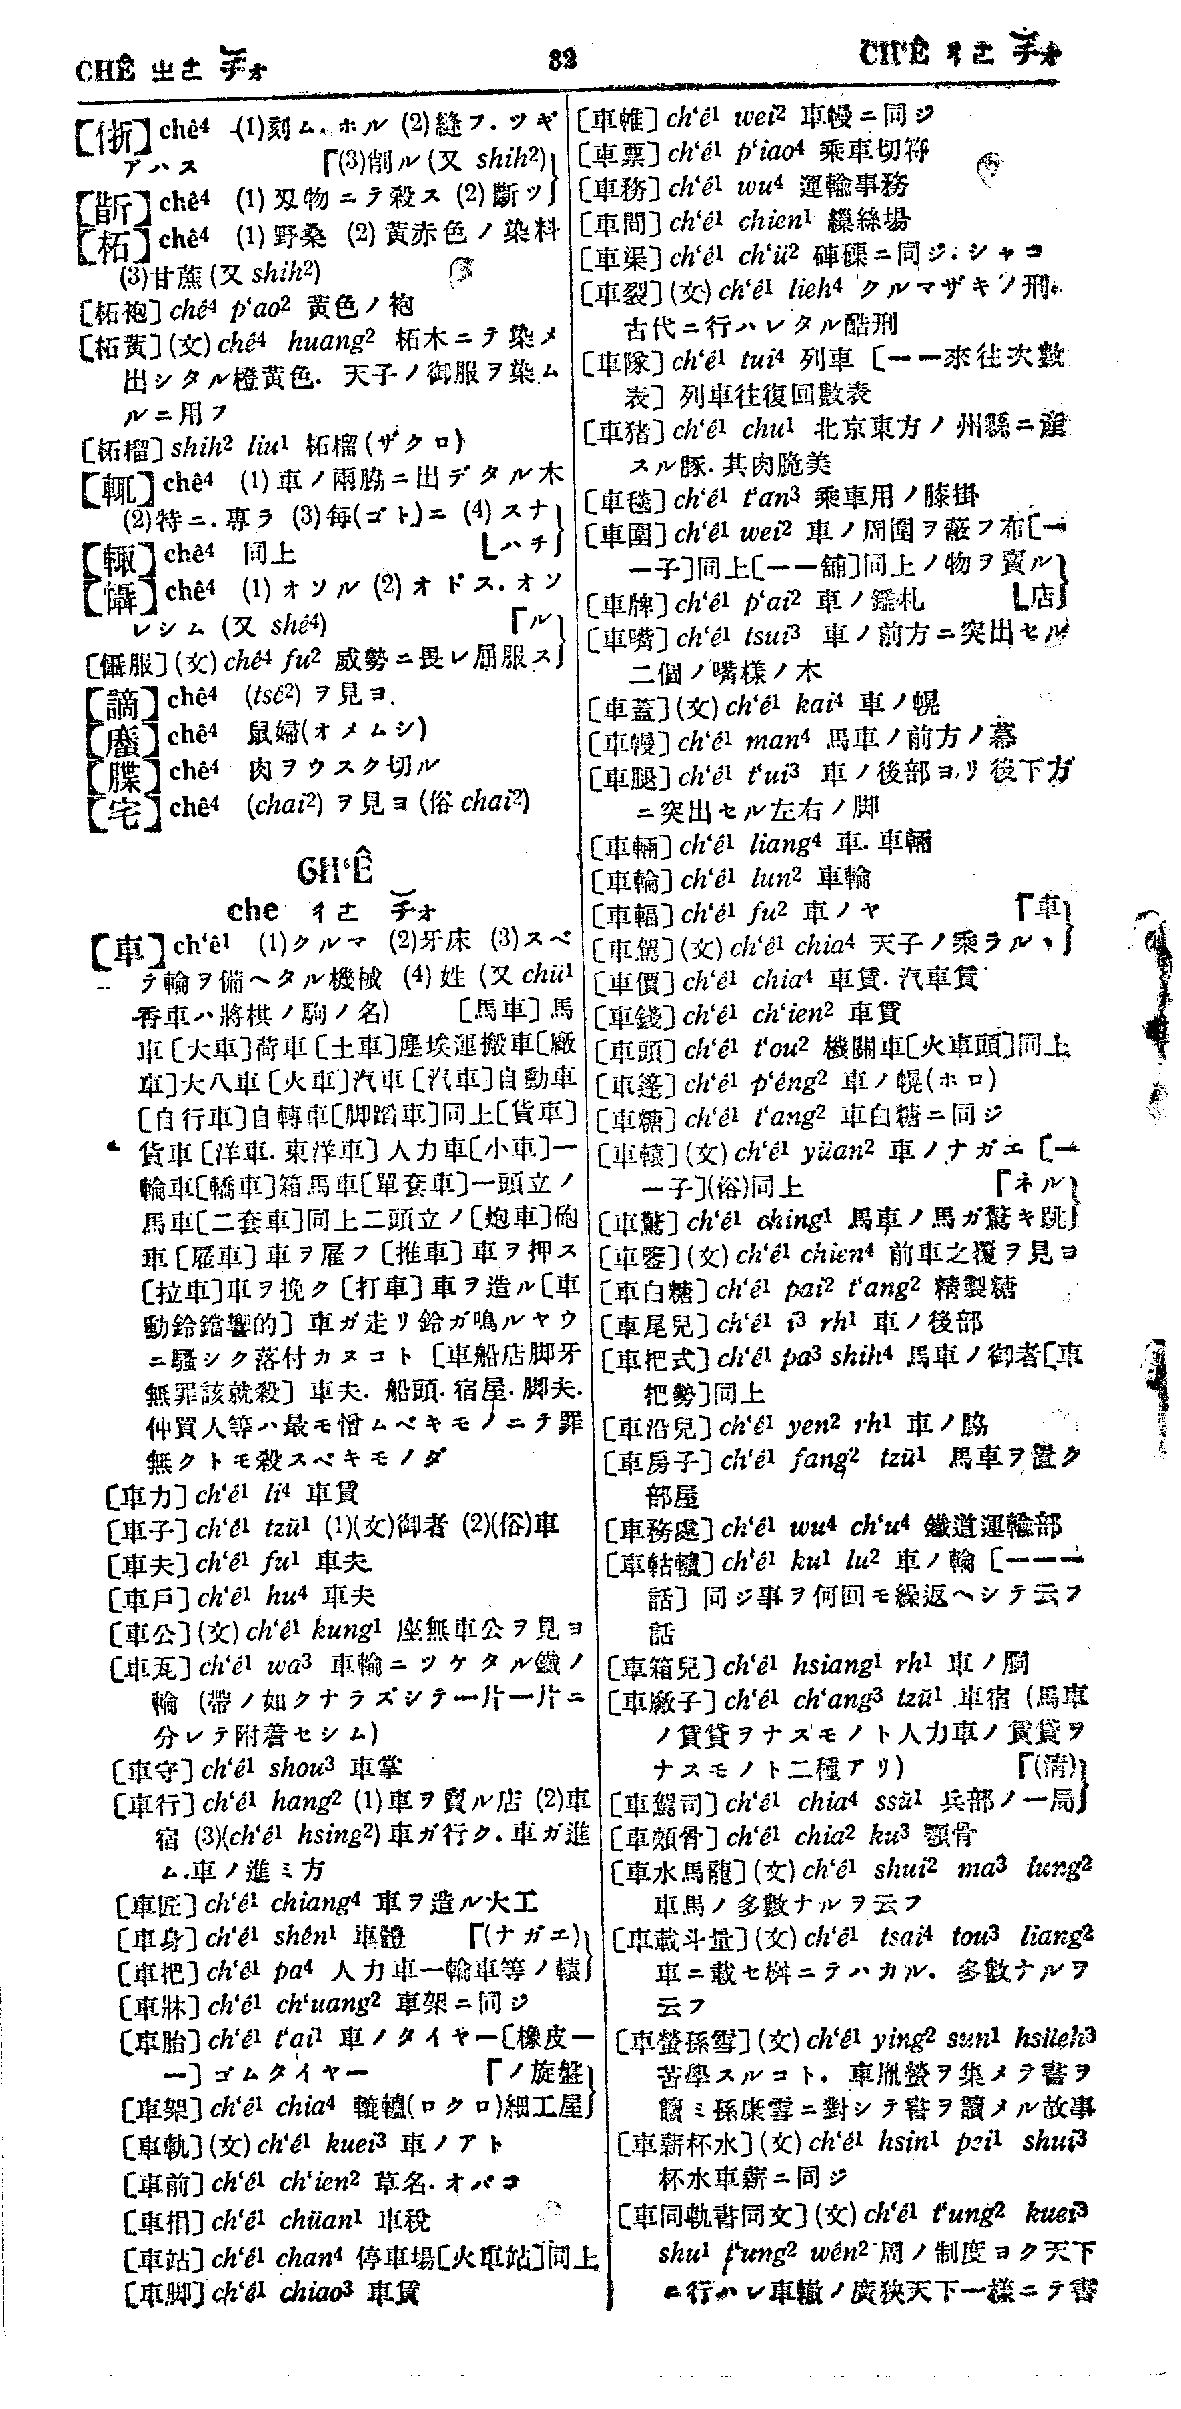 CHÊ ㄓㄜ チォ
82
CH‘Ê ㄔㄜ チォ
【㑿】 chê⁴ (1)刻ム. ホル (2)縫フ. ツギ
アハス 「(3)削ル(又 shih²)
【斮】 chê⁴ (1) 刄物ニテ殺ス (2)斷ツ
【柘】 chê⁴ (1) 野桑 (2) 黃赤色ノ染料
(3)甘蔗(又 shih²)
[柘袍] chê⁴ p‘ao² 黃色ノ袍
[柘黃](文) chê⁴ huang² 柘木ニテ染メ
出シタル橙黃色. 天子ノ御服ヲ染ム
ルニ用フ
[柘榴] shih² liu¹ 柘榴(ザクロ)
【輒】 chê⁴ (1)車ノ兩脇ニ出デタル木
(2)特ニ. 專ラ (3)每(ゴト)ニ (4)スナ
【輙】 chê⁴ 同上 ハチ
【懾】 chê⁴ (1)オソル (2)オドス. オソ
レシム (又 shê⁴) 「ル
[懾服](文) chê⁴ fu² 威勢ニ畏レ屈服ス
【謫】 chê⁴ (tsê²) ヲ見ヨ
【䗪】 chê⁴ 鼠婦(オメムシ)
【牒】 chê⁴ 肉ヲウスク切ル
【宅】 chê⁴ (chai²) ヲ見ヨ (俗 chai²)
CH‘Ê
che ㄔㄜ チォ
【車】 ch‘ê¹ (1)クルマ (2)牙床 (3)スベ
テ輪ヲ備ヘタル機械 (4)姓 (又 chü¹
香車ハ將棋ノ駒ノ名) [馬車] 馬
車 [大車]荷車 [土車]塵埃運搬車[廠
車]大八車 [火車]汽車 [汽車]自動車
[自行車]自轉車[脚蹈車]同上[貨車]
貨車 [洋車. 東洋車] 人力車[小車]一
輪車[轎車]箱馬車[單套車]一頭立ノ
馬車[二套車]同上二頭立ノ[炮車]砲
車 [雇車] 車ヲ雇フ [推車] 車ヲ押ス
[拉車]車ヲ挽ク [打車] 車ヲ造ル[車
動鈴鐺響的] 車ガ走リ鈴ガ鳴ルヤウ
ニ騷シク落付カヌコト [車船店脚牙
無罪該就殺] 車夫. 船頭. 宿屋. 脚夫.
仲買人等ハ最モ憎ムベキモノニテ罪
無クトモ殺スベキモノダ
[車力] ch‘ê¹ li⁴ 車賃
[車子] ch‘ê¹ tzŭ¹ (1)(文)御者 (2)(俗)車
[車夫] ch‘ê¹ fu¹ 車夫
[車戶] ch‘ê¹ hu⁴ 車夫
[車公](文) ch‘ê¹ kung¹ 座無車公ヲ見ヨ
[車瓦] ch‘ê¹ wa³ 車輪ニツケタル鐵ノ
輪 (帶ノ如クナラズシテ一片一片ニ
分レテ附着セシム)
[車守] ch‘ê¹ shou³ 車掌
[車行] ch‘ê¹ hang² (1)車ヲ賣ル店 (2)車
宿 (3)(ch‘ê¹ hsing²)車ガ行ク. 車ガ進
ム. 車ノ進ミ方
[車匠] ch‘ê¹ chiang⁴ 車ヲ造ル大工
[車身] ch‘ê¹ shên¹ 車體 「(ナガエ)
[車把] ch‘ê¹ pa⁴ 人力車一輪車等ノ轅
[車牀] ch‘ê¹ ch‘uang² 車架ニ同ジ
[車胎] ch‘ê¹ t‘ai¹ 車ノタイヤー[橡皮一
一] ゴムタイヤー 「ノ旋盤
[車架] ch‘ê¹ chia⁴ 轆轤(ロクロ)細工屋
[車軌](文) ch‘ê¹ kuei³ 車ノアト
[車前] ch‘ê¹ ch‘ien² 草名. オバコ
[車捐] ch‘ê¹ chüan¹ 車稅
[車站] ch‘ê¹ chan⁴ 停車場[火車站]同上
[車脚] ch‘ê¹ chiao³ 車賃
[車帷] ch‘ê¹ wei² 車幔ニ同ジ
[車票] ch‘ê¹ p‘iao⁴ 乘車切符
[車務] ch‘ê¹ wu⁴ 運輸事務
[車間] ch‘ê¹ chien¹ 繰絲場
[車渠] ch‘ê¹ ch‘ü² 硨磲ニ同ジ. シャコ
[車裂](文) ch‘ê¹ lieh⁴ クルマザキノ刑.
古代ニ行ハレタル酷刑
[車隊] ch‘ê¹ tui⁴ 列車 [一一來往次數
表] 列車往復回數表
[車猪] ch‘ê¹ chu¹ 北京東方ノ州縣ニ產
スル豚. 其肉脆美
[車毯] ch‘ê¹ t‘an³ 乘車用ノ膝掛
[車圍] ch‘ê¹ wei² 車ノ周圍ヲ蔽フ布[一
一子]同上[一一舖]同上ノ物ヲ賣ル
[車牌] ch‘ê¹ p‘ai² 車ノ鑑札 店
[車嘴] ch‘ê¹ tsui³ 車ノ前方ニ突出セル
二個ノ嘴樣ノ木
[車蓋](文) ch‘ê¹ kai⁴ 車ノ幌
[車幔] ch‘ê¹ man⁴ 馬車ノ前方ノ幕
[車腿] ch‘ê¹ t‘ui³ 車ノ後部ヨリ後下方
ニ突出セル左右ノ脚
[車輛] ch‘ê¹ liang⁴ 車. 車輛
[車輪] ch‘ê¹ lun² 車輪
[車輻] ch‘ê¹ fu² 車ノヤ 「車
[車駕](文) ch‘ê¹ chia⁴ 天子ノ乘ラルヽ
[車價] ch‘ê¹ chia⁴ 車賃. 汽車賃
[車錢] ch‘ê¹ ch‘ien² 車賃
[車頭] ch‘ê¹ t‘ou² 機關車[火車頭]同上
[車篷] ch‘ê¹ p‘êng² 車ノ幌(ホロ)
[車糖] ch‘ê¹ t‘ang² 車白糖ニ同ジ
[車轅](文) ch‘ê¹ yüan² 車ノナガエ [一
一子](俗)同上 「ネル
[車驚] ch‘ê¹ ching¹ 馬車ノ馬ガ驚キ跳
[車鑒](文) ch‘ê¹ chien⁴ 前車之覆ヲ見ヨ
[車白糖] ch‘ê¹ pai² t‘ang² 精製糖
[車尾兒] ch‘ê¹ i³ rh¹ 車ノ後部
[車把式] ch‘ê¹ pa³ shih⁴ 馬車ノ御者[車
把勢]同上
[車沿兒] ch‘ê¹ yen² rh¹ 車ノ脇
[車房子] ch‘ê¹ fang² tzŭ¹ 馬車ヲ置ク
部屋
[車務處] ch‘ê¹ wu⁴ ch‘u⁴ 鐵道運輸部
[車轱轤] ch‘ê¹ ku¹ lu² 車ノ輪 [一一一
話] 同ジ事ヲ何回モ繰返ヘシテ云フ
話
[車箱兒] ch‘ê¹ hsiang¹ rh¹ 車ノ胴
[車廠子] ch‘ê¹ ch‘ang³ tzŭ¹ 車宿 (馬車
ノ賃貸ヲナスモノト人力車ノ賃貸ヲ
ナスモノト二種アリ) 「(淸)
[車駕司] ch‘ê¹ chia⁴ ssŭ¹ 兵部ノ一局
[車頰骨] ch‘ê¹ chia² ku³ 顎骨
[車水馬龍](文) ch‘ê¹ shui² ma³ lung²
車馬ノ多數ナルヲ云フ
[車載斗量](文) ch‘ê¹ tsai⁴ tou³ liang²
車ニ載セ桝ニテハカル. 多數ナルヲ
云フ
[車螢孫雪](文) ch‘ê¹ ying² sun¹ hsüeh³
苦學スルコト. 車胤螢ヲ集メテ書ヲ
讀ミ孫康雪ニ對シテ書ヲ讀メル故事
[車薪杯水](文) ch‘ê¹ hsin¹ pei¹ shui³
杯水車薪ニ同ジ
[車同軌書同文](文) ch‘ê¹ t‘ung² kuei³
shu¹ t‘ung² wên² 周ノ制度ヨク天下
ニ行ハレ車轍ノ廣狹天下一樣ニテ書